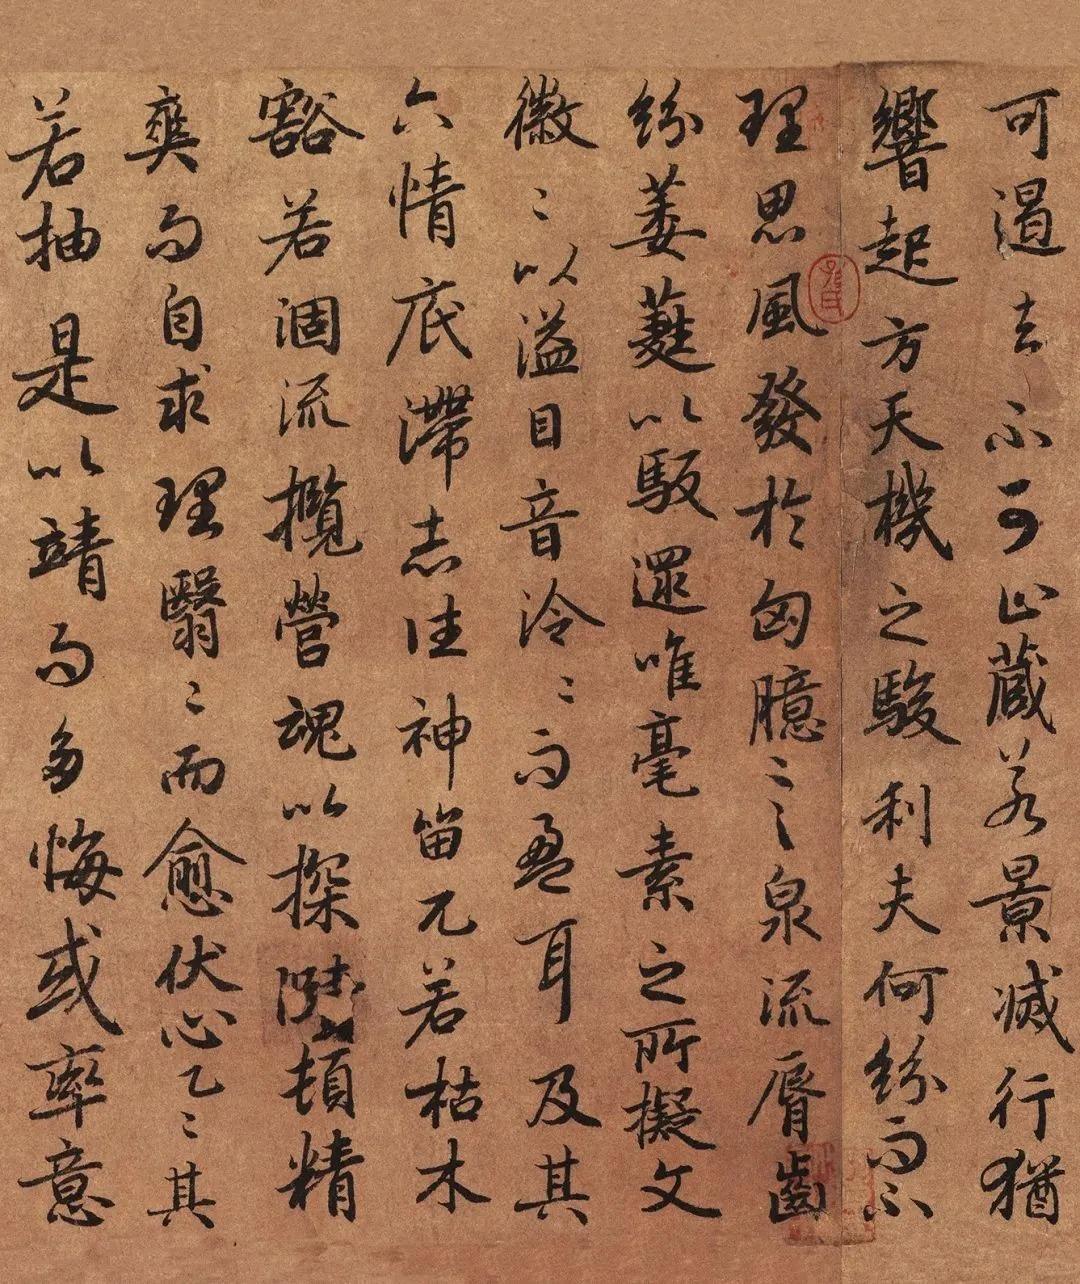 可遏去不可止蔵若景滅行猶
響起方天機之駿利夫何紛而不
理思風發於匈臆言泉流脣齒
紛萎蕤以馺遝唯毫素之所擬文
徽〻以溢目音泠〻而盈耳及其
六情底滯志往神留兀若枯木
豁若涸流攬營魂以探頓精
爽而自求理翳〻而愈伏心乙〻其
若抽是以靖而多悔或率意